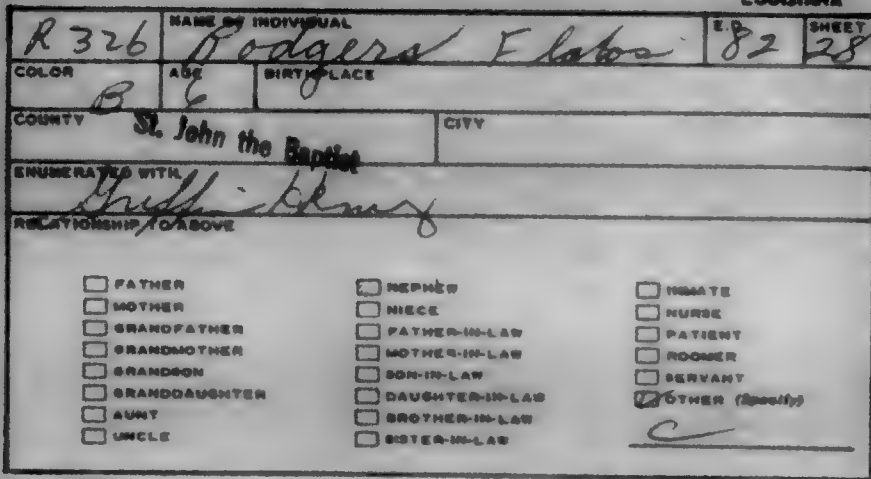 LOUISIANA
R 326 NAME OF INDIVIDUAL Rodgers E.D. 82 SHEET 28
COLOR B AGE 6 BIRTHPLACE
COUNTY St. John the Baptist CITY
ENUMERATED WITH Griffin
RELATIONSHIP TO ABOVE
FATHER
MOTHER
GRANDFATHER
GRANDMOTHER
GRANDSON
GRANDDAUGHTER
AUNT
UNCLE
NEPHEW
NIECE
FATHER-IN-LAW
MOTHER-IN-LAW
SON-IN-LAW
DAUGHTER-IN-LAW
BROTHER-IN-LAW
SISTER-IN-LAW
INMATE
NURSE
PATIENT
ROOMER
SERVANT
OTHER (Specify)
C